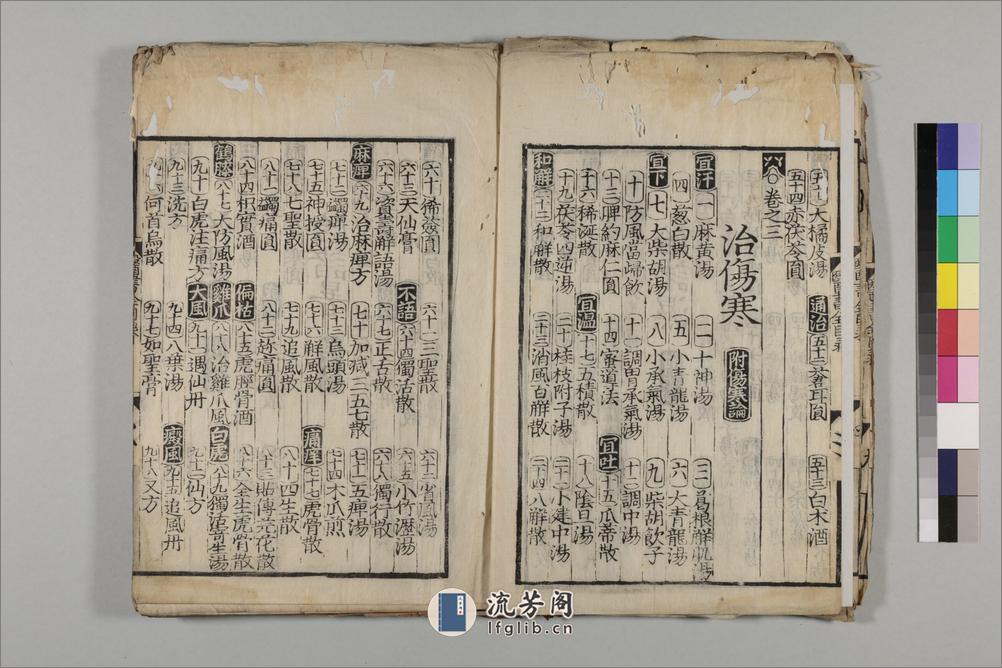 大橘皮湯 通治 五十二 蒼耳圓 五十三 白术酒
五十四 赤茯苓圓
卷之三
治傷寒 附傷寒論
宜汗 一 麻黃湯 二 十神湯 三 葛根解肌湯
四 葱白散 五 小青龍湯 六 大青龍湯
宜下 七 大柴胡湯 八 小承氣湯 九 柴胡飲子
十 防風當歸飲 十一 調胃承氣湯 十二 調中湯
十三 脾約麻仁圓 十四 蜜道法 宜吐 十五 瓜蒂散
十六 稀涎散 宜温 十七 五積散 十八 陰旦湯
十九 茯苓四逆湯 二十 桂枝附子湯 二十一 小建中湯
和解 二十二 和解散 二十三 消風百解散 二十四 八解散
六十 稀薟圓 六十一 三聖散 六十二 省風湯
六十三 天仙膏 不語 六十四 獨活散 六十五 小竹瀝湯
六十六 資壽解語湯 六十七 正舌散 六十八 獨行散
麻痺 六十九 治麻痺方 七十 加減三五七散 七十一 五痺湯
七十二 蠲痺湯 七十三 烏頭湯 七十四 木瓜煎
七十五 神授圓 七十六 解風散 痛痒 七十七 虎骨散
七十八 七聖散 七十九 追風散 八十 四生散
八十一 蠲痛圓 八十二 趂痛圓 八十三 貼傅芫花散
八十四 枳實酒 偏枯 八十五 虎脛骨酒 八十六 全生虎骨散
鶴膝 八十七 大防風湯 雞爪 八十八 治雞爪風 白虎 八十九 獨活寄生湯
九十 白虎注痛方 大風 九十一 遇仙丹 九十二 仙方
九十三 洗方 九十四 八葉湯 癜風 九十五 追風丹
何首烏散 九十七 如聖膏 九十八 又方
流芳阁
lfglib.cn